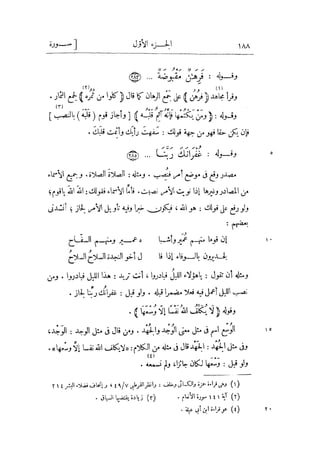 ١٨٨ الجزء الأوّل [ سورة
وقوله : فَرِهَٰنٌ مَّقْبُوضَةٌ ... ٢٨٣
وقرأ مجاهد (فَرُهُنٌ) على جمع الرهان كما قال (كلوا من ثُمُره) لجمع الثمار .
وقوله : (ومَنْ يَكْتُمْها فإنّه آثِمٌ قَلْبُه) [وأجاز قوم (قلبَه) بالنصب]
فإن يكن حقا فهو من جهة قولك : سفِهتَ رأيَك وأثِمتَ قلبَك .
وقوله : غُفْرَانَكَ رَبَّنَا ... ٢٨٥
مصدر وقع فى موضع أمر فنصب . ومثله : الصلاةَ الصلاةَ . وجميع الأسماء
من المصادر وغيرها إذا نويت الأمر نصبت . فأمّا الأسماء فقولك : اللهَ اللهَ يا قوم ؛
ولو رفع على قولك : هو اللهُ ، فيكون خبرا وفيه تأويل الأمر لجاز ؛ أنشدنى
بعضهم :
١٠ إن قوما منهم عُمَير وأشبا ه عمير ومنهم السفّاح
لجديرون بالوفاء إذا قا ل أخو النجدة السلاحُ السلاحُ
ومثله أن تقول : يا هؤلاء الليلُ فبادروا ، أنت تريد : هذا الليل فبادروا . ومن
نصب الليل أعمل فيه فعلا مضمرا قبله . ولو قيل : غفرانُك ربَّنا لجاز .
وقوله (لَا يُكَلِّفُ اللهُ نَفْسًا إِلَّا وُسْعَهَا) .
١٥ الوُسْع اسم فى مثل معنى الوُجْد والجُهْد . ومن قال فى مثل الوجد : الوَجْد ،
وفى مثل الجُهْد : الجَهْد قال فى مثله من الكلام : «لا يكلف الله نفسا إلّا وَسْعها» .
ولو قيل : وَسْعها لكان جائزا ولم نسمعه .
(١) وهى قراءة حمزة والكسائى وخلف : وانظر القرطبى ٤٩/٧ و إتحاف فضلاء البشر ٢١٤
(٢) آية ١٤١ سورة الأنعام . (٣) زيادة يقتضيها السياق .
٢٠ (٤) هو قراءة ابن أبى عبلة .